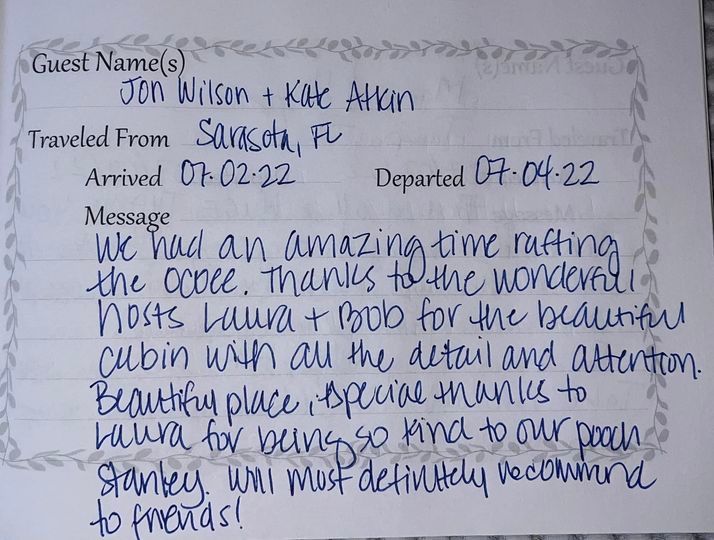 Guest Name(s)
Jon Wilson + Kate Atkin
Traveled From Sarasota, FL
Arrived 07.02.22 Departed 07.04.22
Message
We had an amazing time rafting
the ocoee. Thanks to the wonderful
hosts Laura + Bob for the beautiful
cabin with all the detail and attention.
Beautiful place, special thanks to
Laura for being so kind to our pooch
Stanley. Will most definitely recommend
to friends!